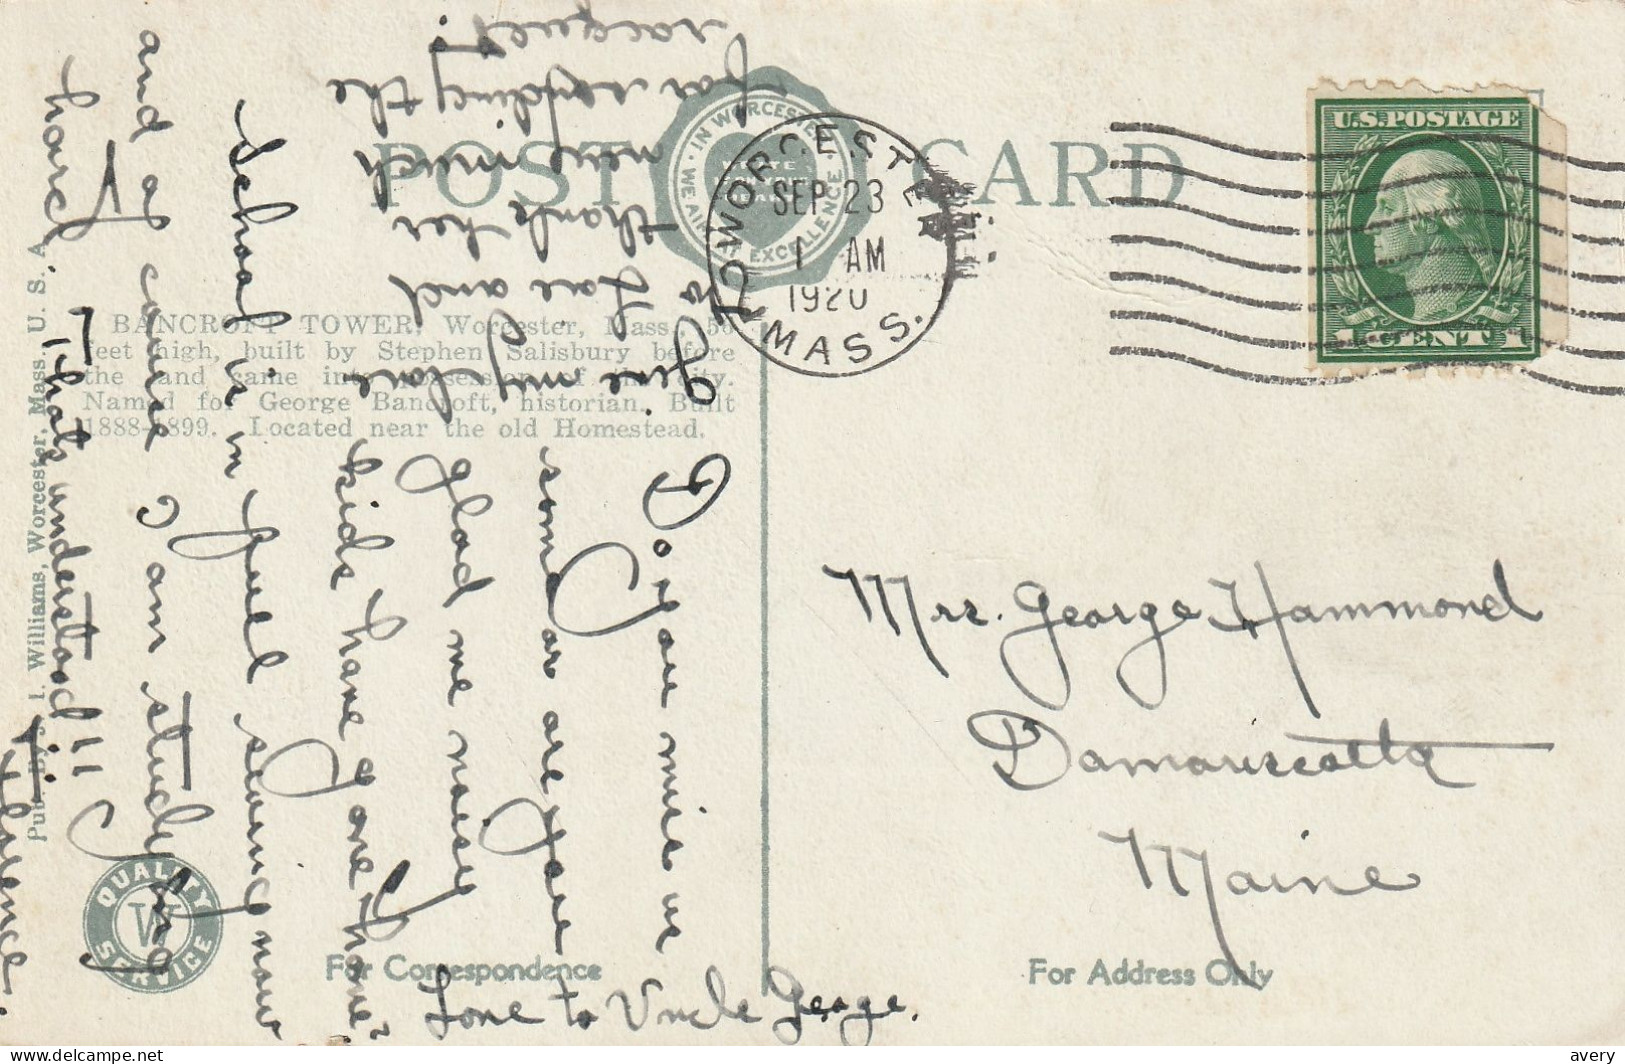 POST CARD
· IN WORCESTER ·
WE AIM EXCELLENCE
WORCESTER
SEP 23
1 AM
1920
MASS.
U.S. POSTAGE
1 CENT 1
BANCROFT TOWER, Worcester, Mass., 56
feet high, built by Stephen Salisbury before
the land came into possession of the city.
Named for George Bancroft, historian. Built
1888-1899. Located near the old Homestead.
Pub. by J. I. Williams, Worcester, Mass. U. S. A.
QUALITY
W
SERVICE
For Correspondence
For Address Only
Mrs. George Hammond
Damariscotta
Maine
Do you miss us
some or are you
glad we noisy
kids have gone home?
School is in full swing now
and of course I am studying
hard
Thats understood!!
Florence.
Give my love
to and
thank her
very much
for sending the
racquet.
Love to Uncle George.